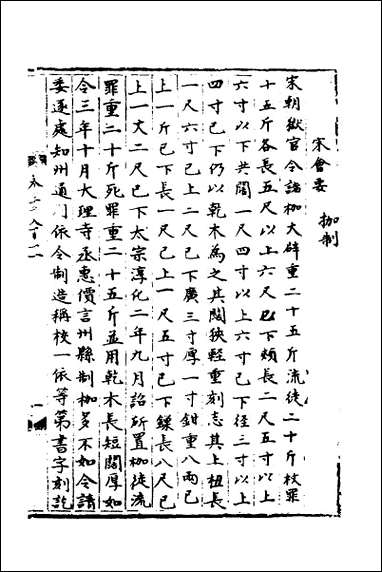 宋會要 枷制
宋朝獄官令諸枷大辟重二十五斤流徒二十斤杖罪
十五斤各長五尺以上六尺已下頰長二尺五寸以上
六寸以下共闊一尺四寸以上六寸已下径三寸以上
四寸已下仍以乾木為之其闊狹輕重刻志其上杻長
一尺六寸已上二尺已下廣三寸厚一寸鉗重八兩已
上一斤已下長一尺已上一尺五寸已下鏁長八尺已
上一丈二尺已下太宗淳化二年九月詔所置枷徒流
罪重二十斤死罪重二十五斤並用乾木長短闊厚如
令三年十月大理寺丞惠價言州縣制枷多不如令請
委逐處知州通門依令制造稱校一依等第書字刻訖